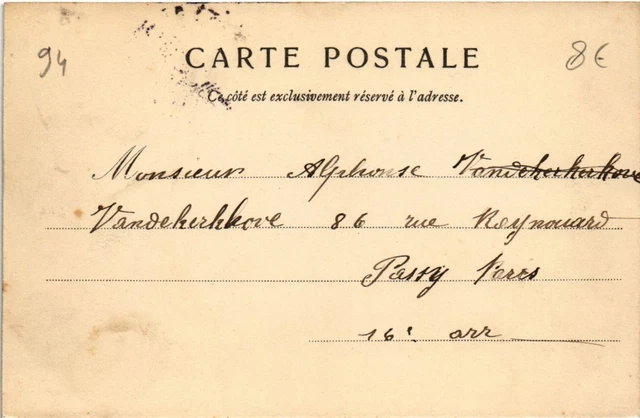 94
8€
CARTE POSTALE
Ce côté est exclusivement réservé à l'adresse.
Monsieur Alphonse Vandekerkhove
Vandekerkhove 86 rue Reynouard
Passy Paris
16e arr